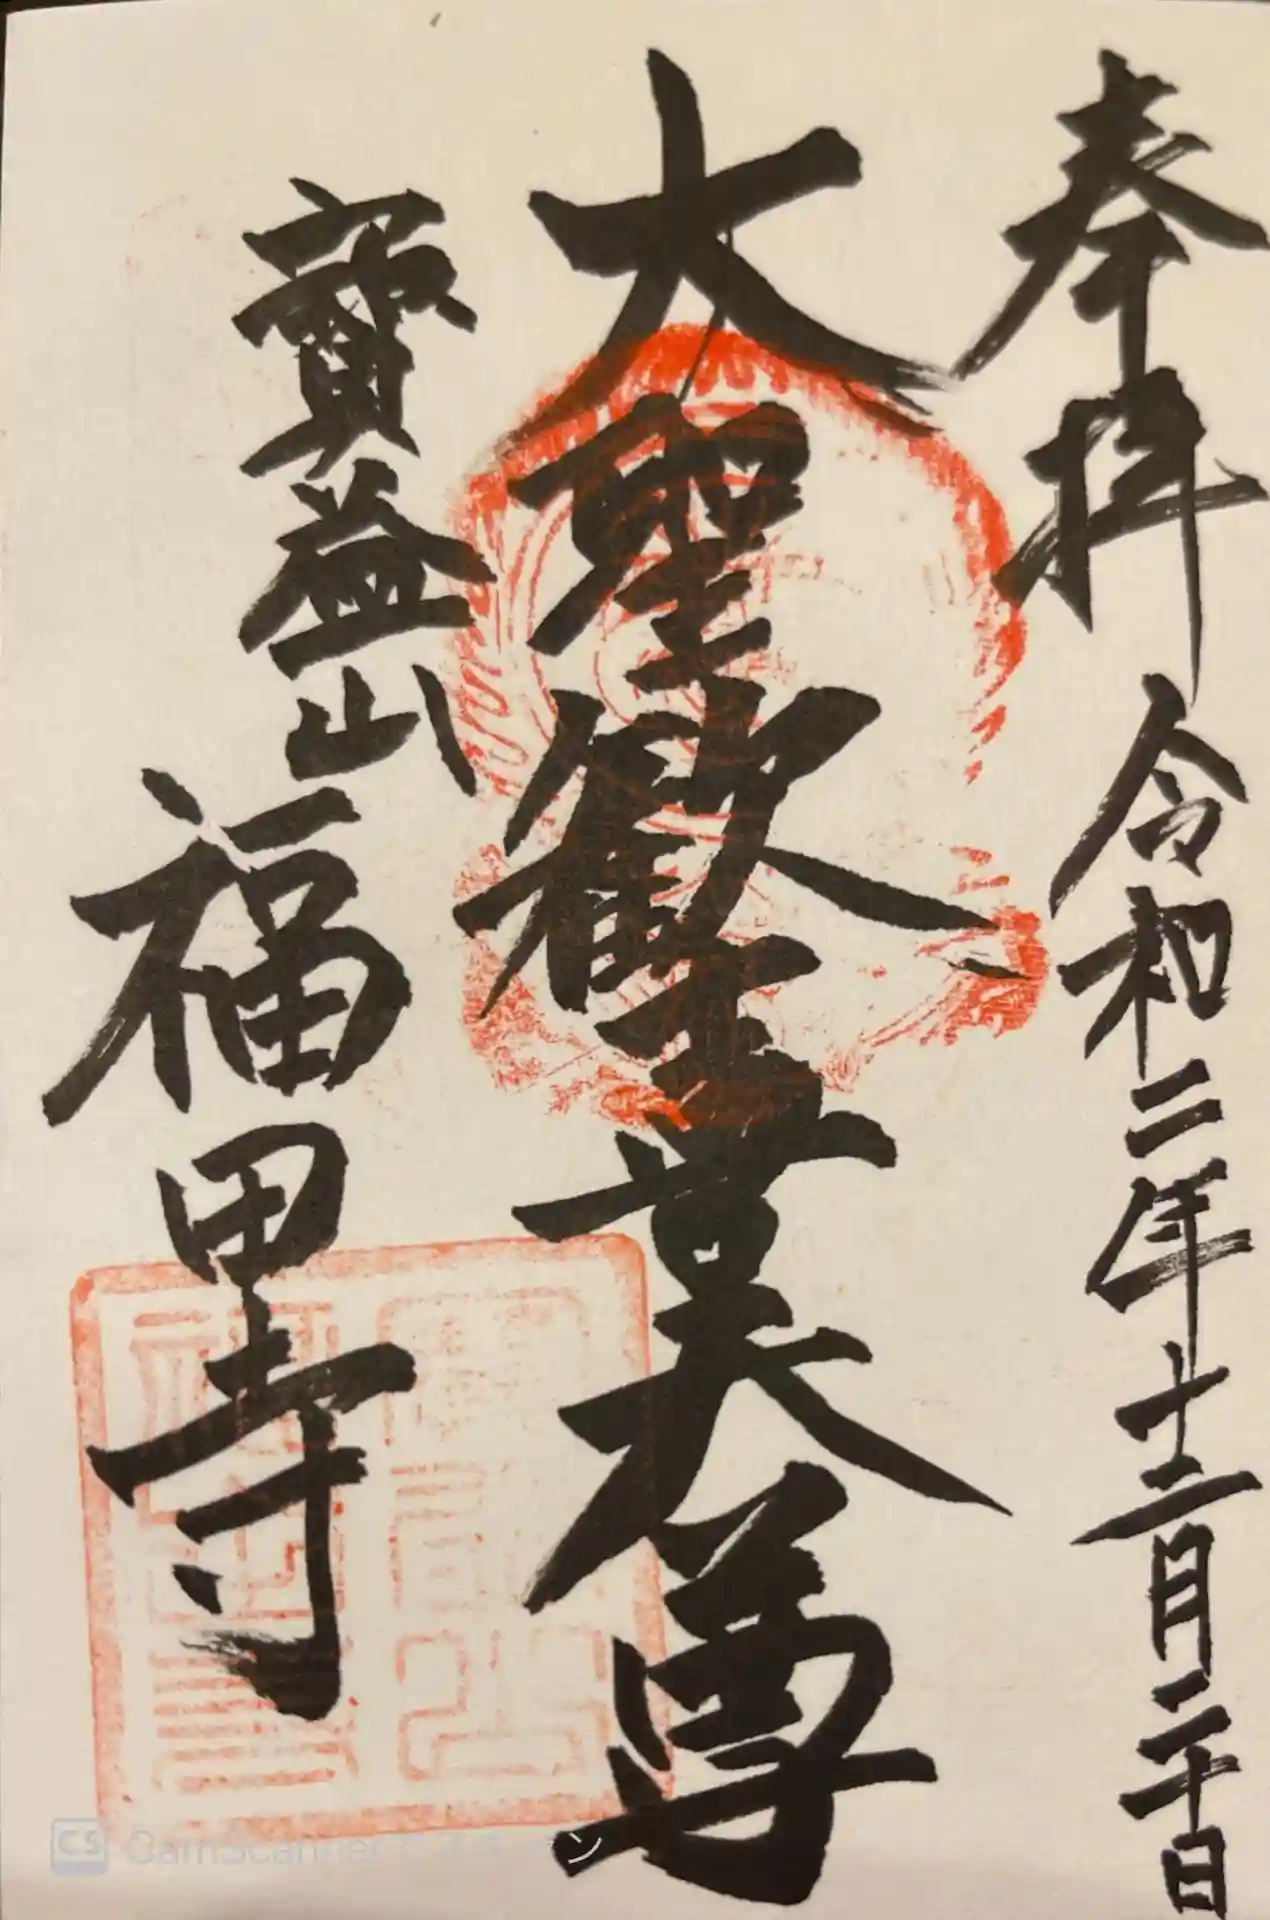 奉拝 令和二年十二月二十日
大聖歡喜天尊
寶益山 福田寺
CS CamScanner でスキャン